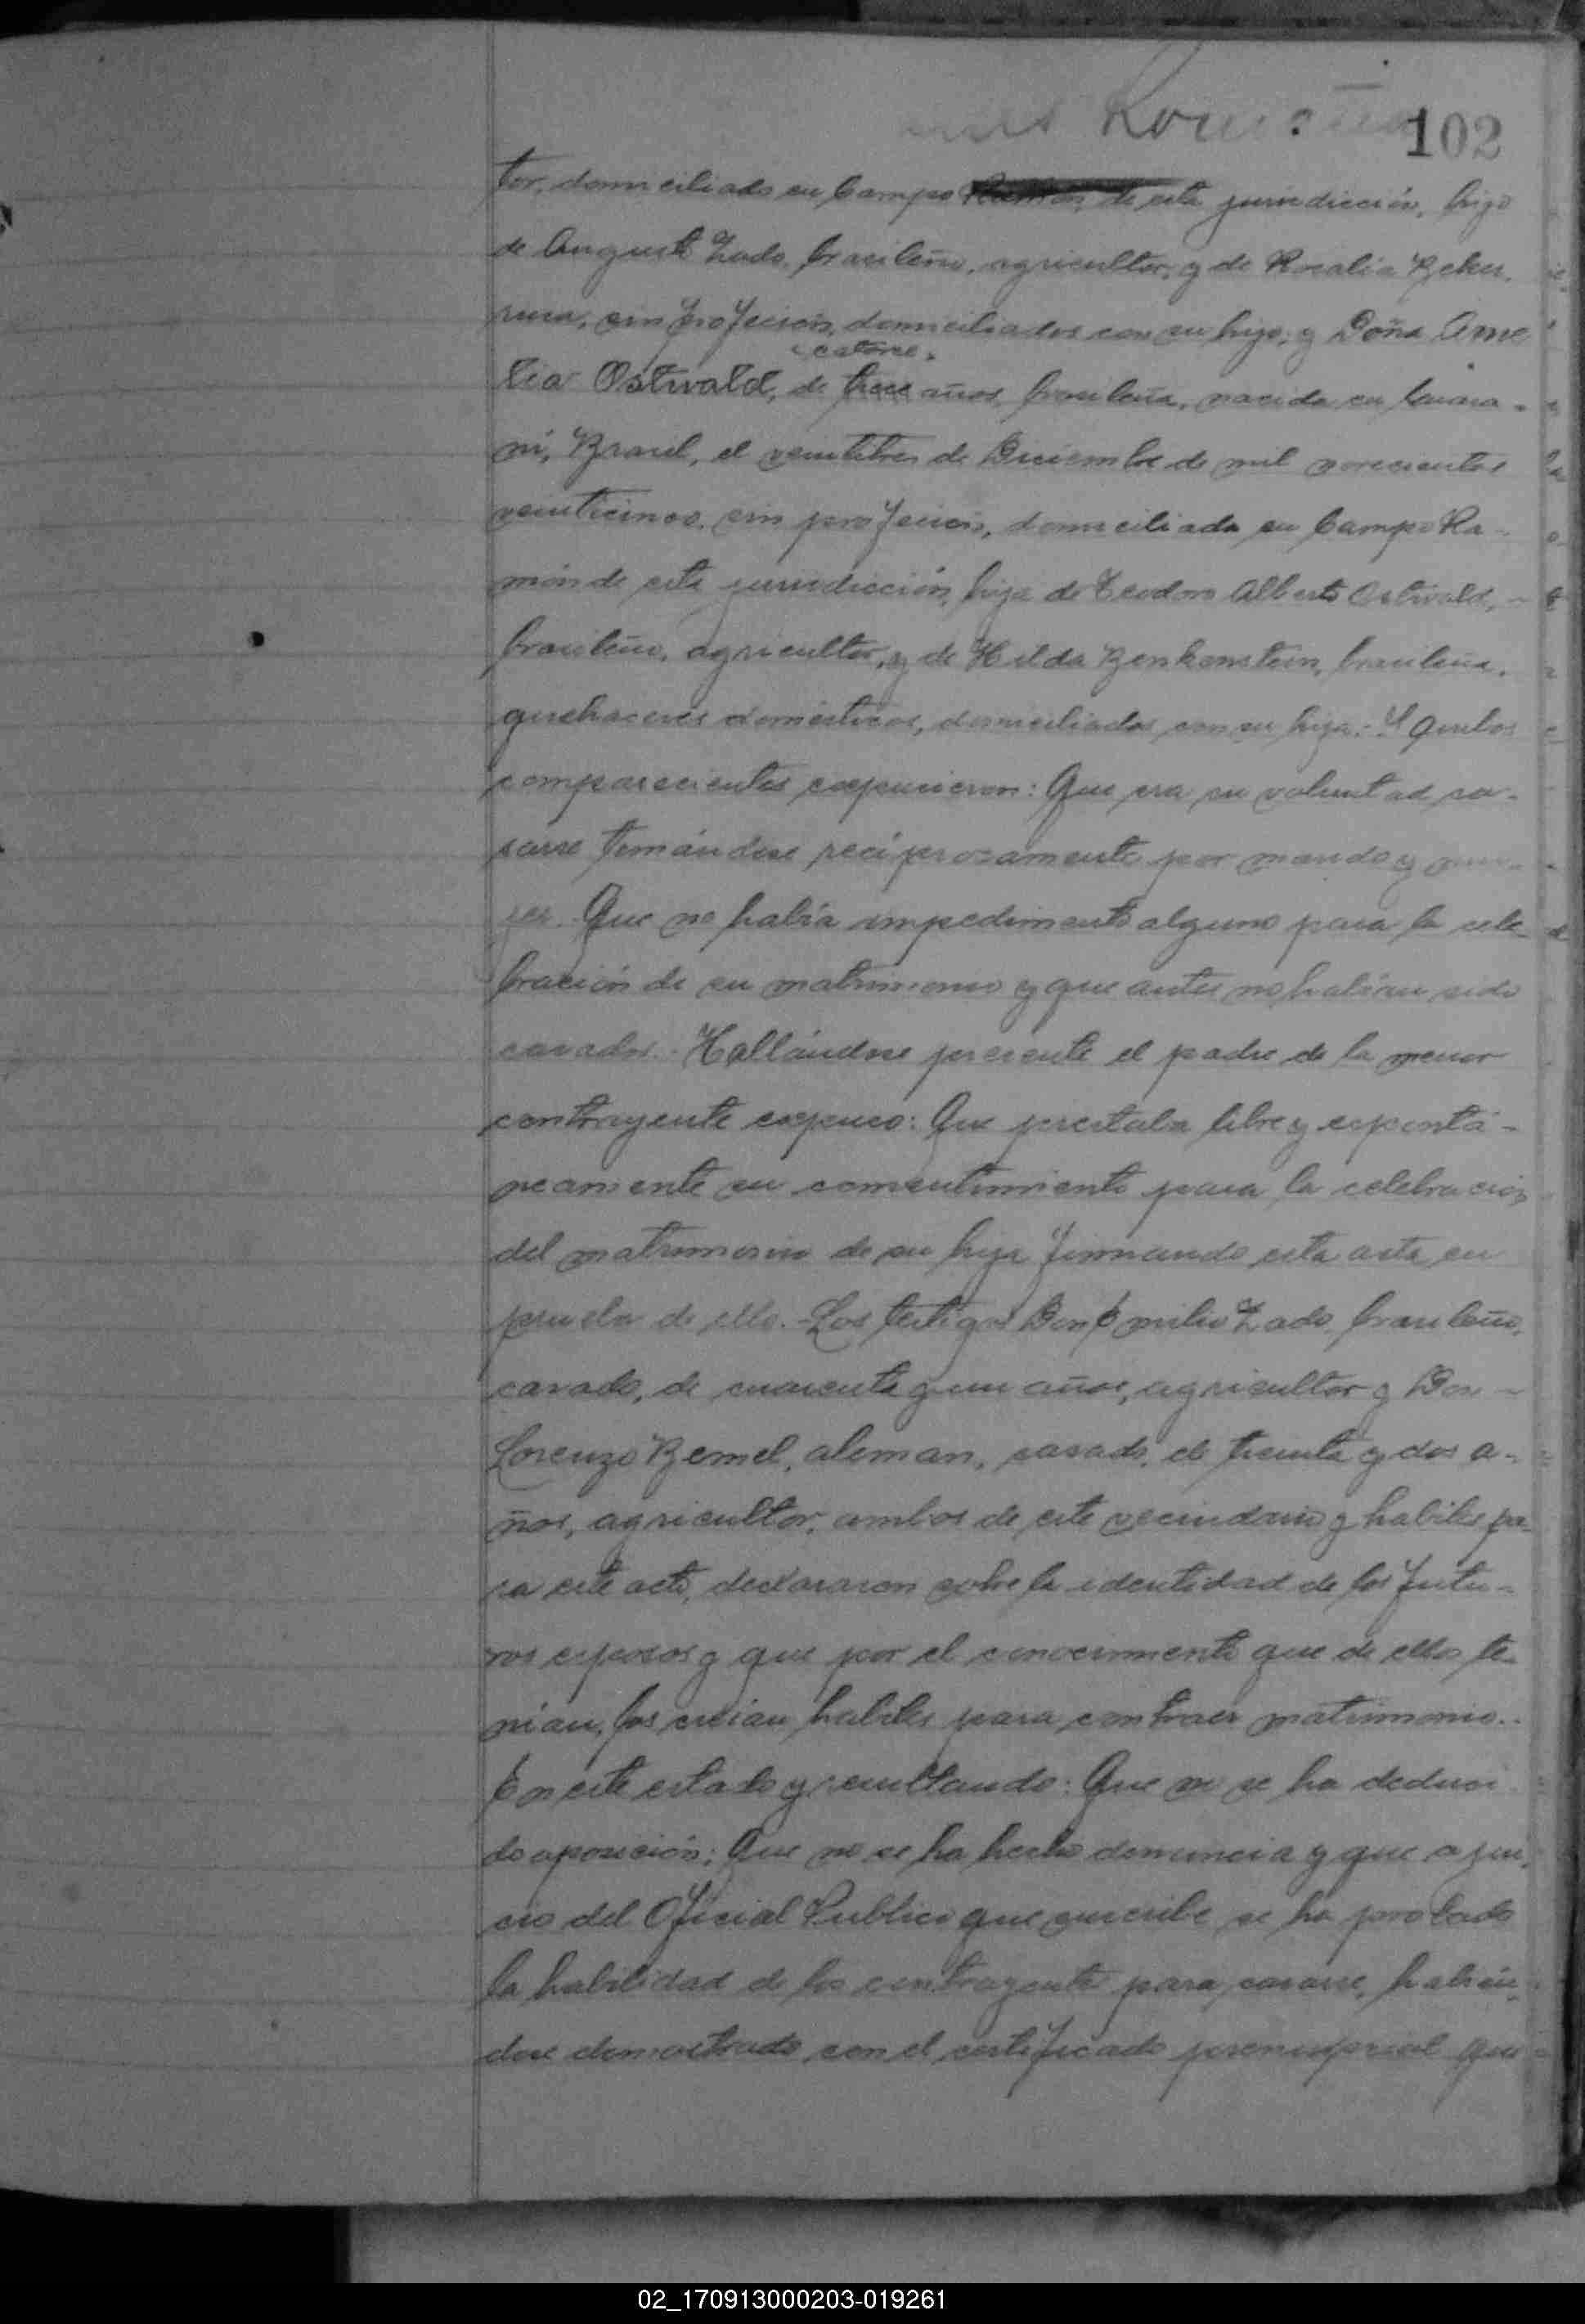 102
tor, domiciliado en Campo Ramón, de esta jurisdicción, hijo
de Augusto Zado, brasileño, agricultor, y de Rosalia Beker,
rusa, sin profesión, domiciliados con su hijo; y Doña Ame
catorce.
lia Ostwald, de trece años, brasileña, nacida en
ní, Brasil, el veintitres de Diciembre de mil novecientos
veinticinco, sin profesión, domiciliada en Campo Ra-
món de esta jurisdicción, hija de Teodoro Alberto Ostwald,-
brasileño, agricultor, y de Hilda Benkenstein, brasileña,
quehaceres domésticos, domiciliados con su hija.- Y ambos
comparecientes expusieron: Que era su voluntad ca-
sarse tomándose recíprocamente por marido y mu-
jer. Que no había impedimento alguno para la cele-
bración de su matrimonio y que antes no habían sido
casados.- Hallándose presente el padre de la menor
contrayente expuso: Que prestaba libre y espontá-
neamente su consentimiento para la celebración
del matrimonio de su hija firmando esta acta en
prueba de ello.- Los testigos Don Emilio Zado, brasileño,
casado, de cuarenta y un años, agricultor y Don-
Lorenzo Bemel, aleman, casado, de treinta y dos a-
ños, agricultor, ambos de este vecindario y habiles pa-
ra este acto, declararon sobre la identidad de los futu-
ros esposos y que por el conocimiento que de ellos te-
nían, los creían habiles para contraer matrimonio.-
En este estado y resultando: Que no se ha deduci
do oposición; Que no se ha hecho denuncia y que a jui-
cio del Oficial Publico que suscribe se ha probado
la habilidad de los contrayentes para casarse, habién-
dose demostrado con el certificado prenupcial que
02_170913000203-019261